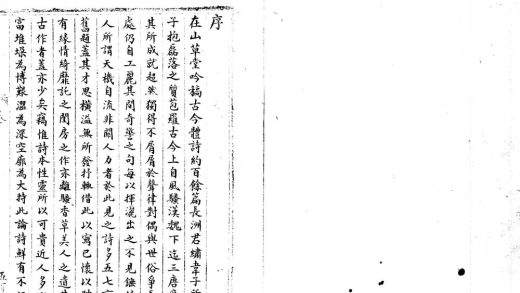 序
在山草堂吟稿古今體詩約百餘篇長洲君繡韋子所
子抱磊落之質苞羅古今上自風騷漢魏下迄三唐
其所成就超然獨得不屑屑於聲律對偶與世俗爭
處仍自工麗其間奇之句每以揮灑出之不見錘
人所謂天機自流非關人力者於此見之詩多五七言
舊題蓋其才思橫溢無所發抒輒借此以寫己懷以
有緣情綺靡託之閨房之作亦離騷香草美人之遺
古作者蓋亦少矣竊惟詩本性靈所以可貴近人多
富堆垛為博艱澀為深空廓為大持此論詩鮮有不